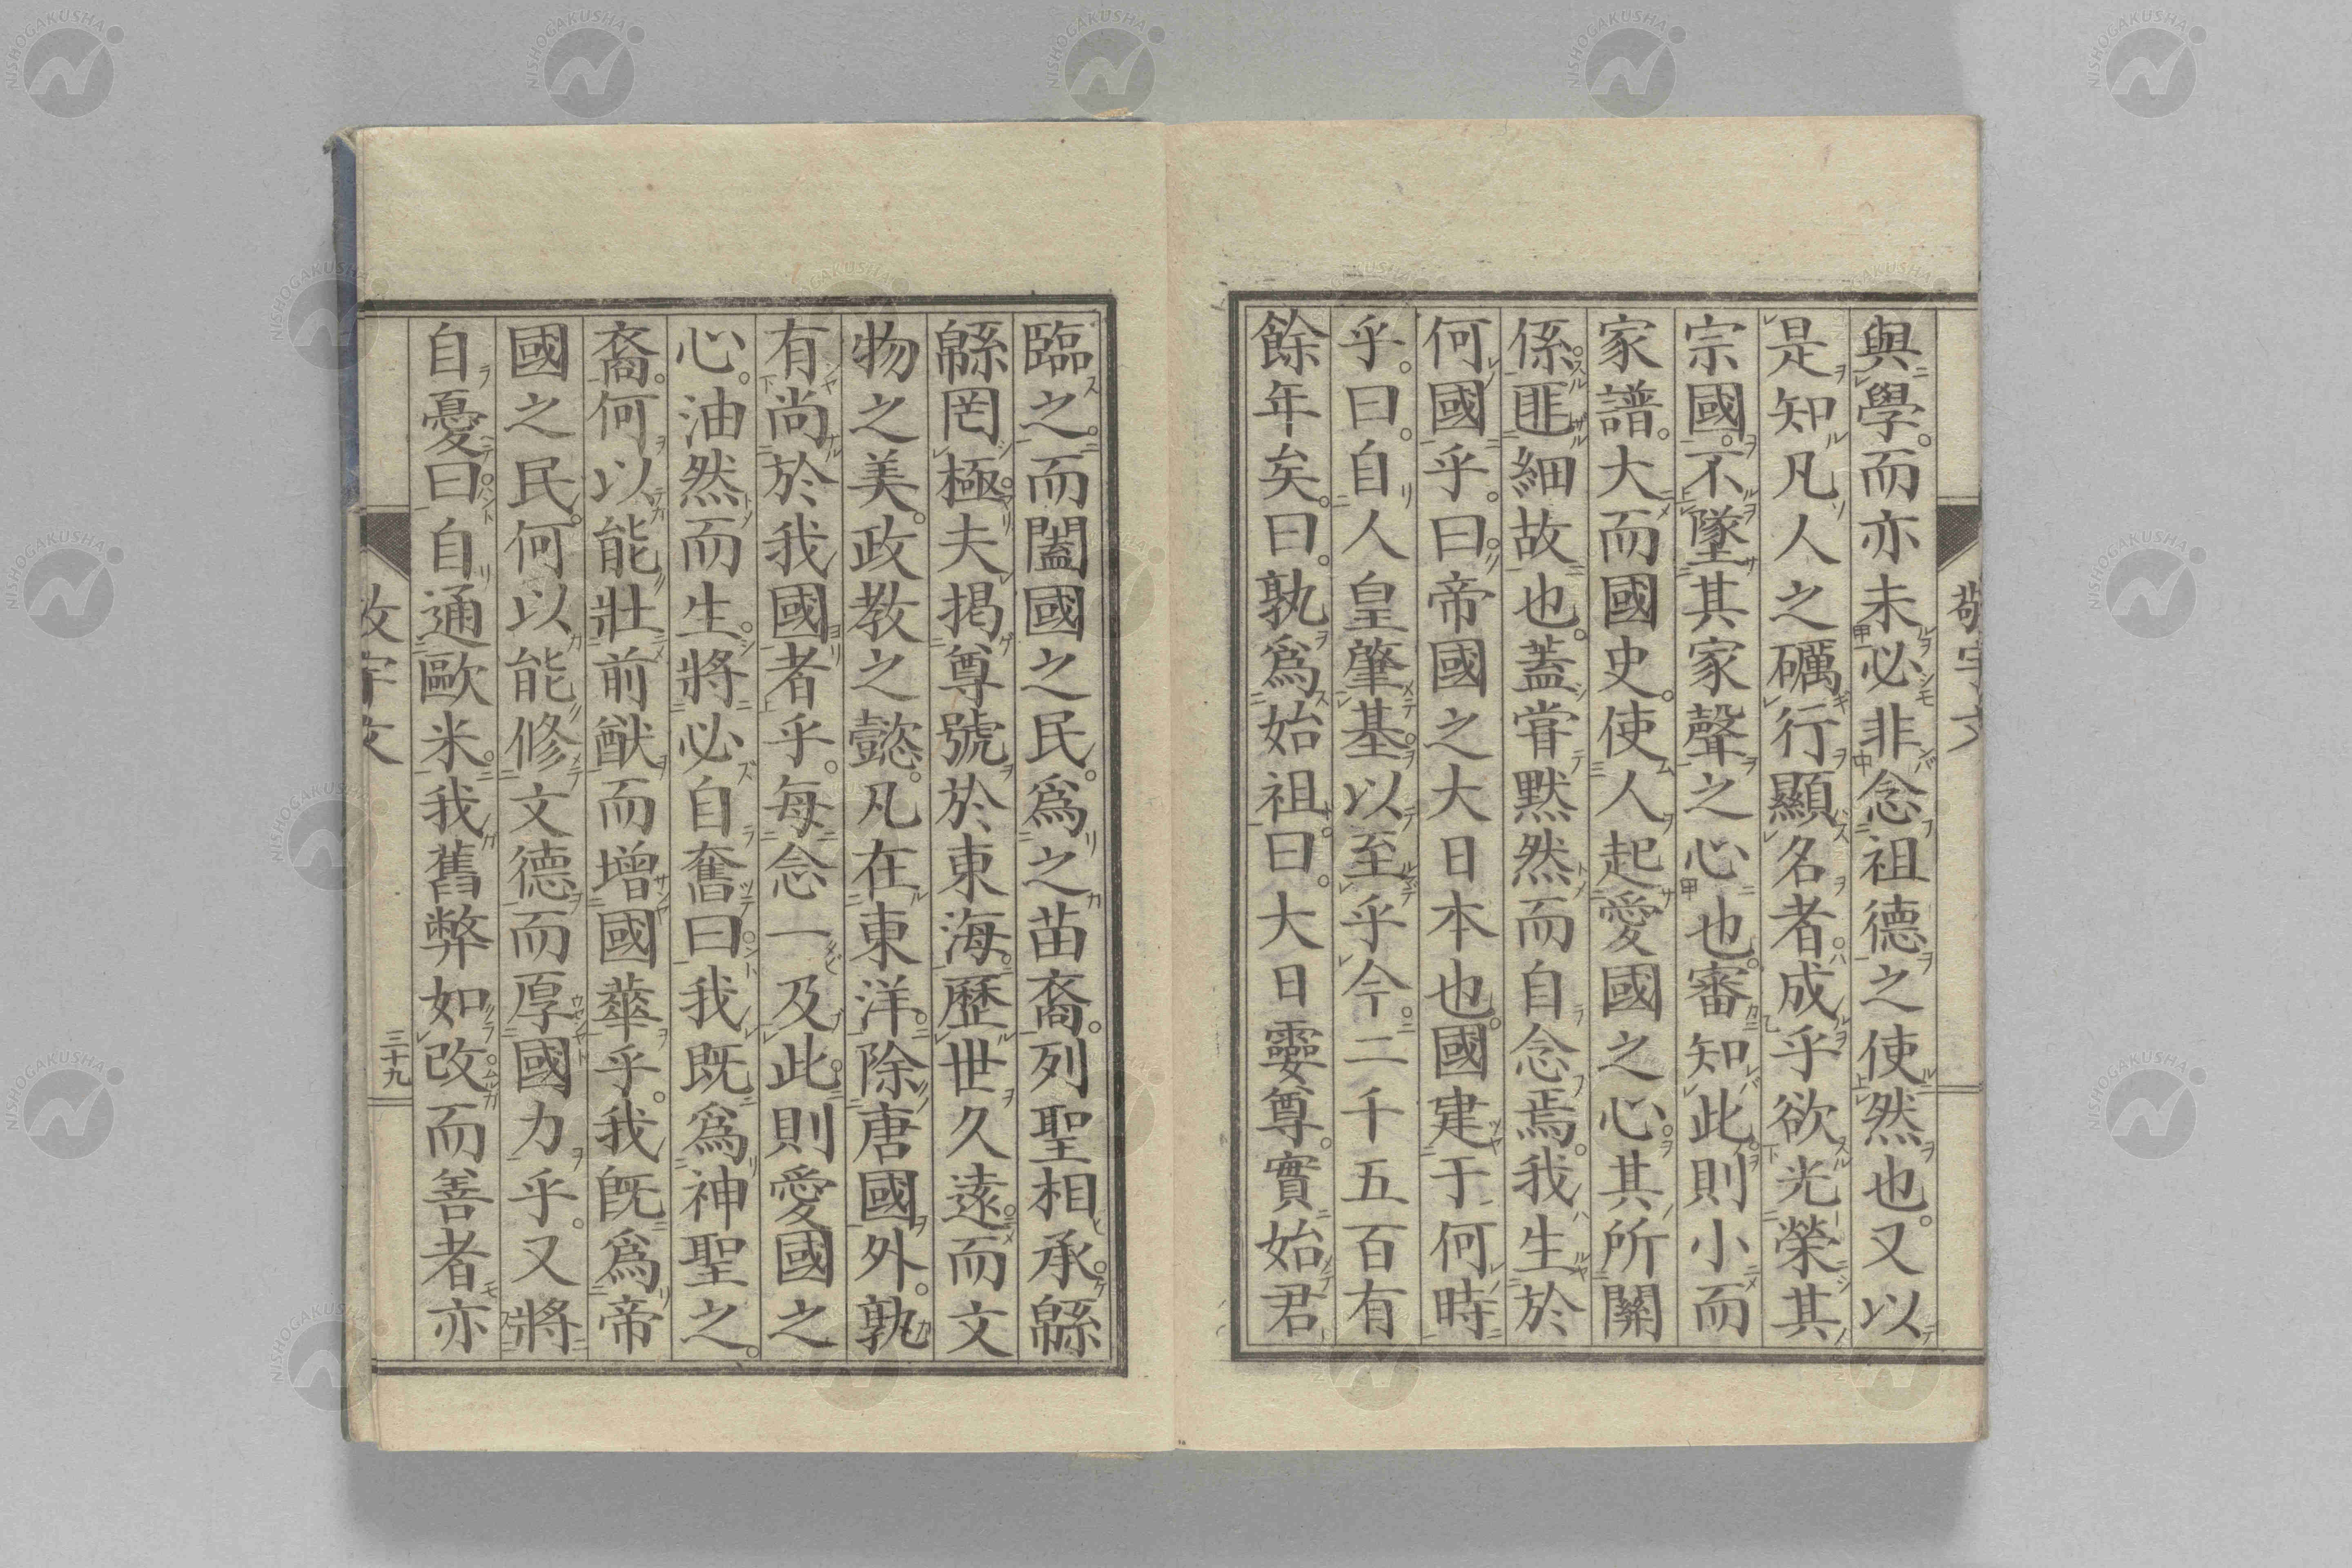 與學。而亦未必非念祖德之使然也。又以
是知凡人之礪行顯名者。成乎欲光榮其
宗國。不墜其家聲之心也。審知此。則小而
家譜。大而國史。使人起愛國之心。其所關
係。匪細故也。蓋嘗默然而自念焉。我生於
何國乎。曰。帝國之大日本也。國建于何時
乎。曰。自人皇肇基。以至乎今。二千五百有
餘年矣。曰。孰為始祖。曰。大日靈尊。實始君
臨之。而闔國之民。為之苗裔。列聖相承。緜
緜罔極。夫揭尊號於東海。歷世久遠。而文
物之美。政教之懿。凡在東洋。除唐國外。孰
有尚於我國者乎。每念一及此。則愛國之
心。油然而生。將必自奮曰。我既為神聖之。
裔。何以能壯前猷而增國華乎。我既為帝
國之民。何以能修文德而厚國力乎。又將
自憂曰。自通歐米。我舊弊如改。而善者亦
敬宇文
三十九